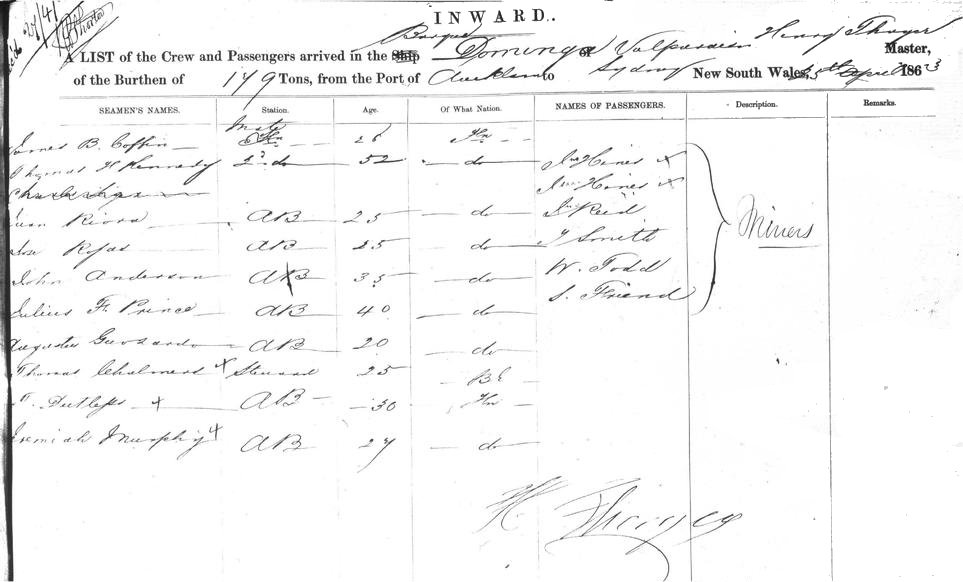 INWARD.
Barque
A LIST of the Crew and Passengers arrived in the Ship Dominga of Valparaiso Henry Thayer Master,
of the Burthen of 179 Tons, from the Port of Auckland to Sydney New South Wales, April 1863
SEAMEN'S NAMES. Station. Age. Of What Nation. NAMES OF PASSENGERS. Description. Remarks.
James B. Coffin Mate 26 Fn
Thomas H Kennedy 2d do 52 do Jno Hines x
Jas Hines x
Juan Rivra AB 25 do Jno Reid Miners
Jose Rojas AB 25 do T Smith
John Anderson AB 35 do W. Todd
Julius F. Prince AB 40 do S. Friend
Augustus AB 20 do
Thomas Chalmers x Steward 25 BE
x AB 30 Fn
Jeremiah Murphy x AB 27 do
H Thayer